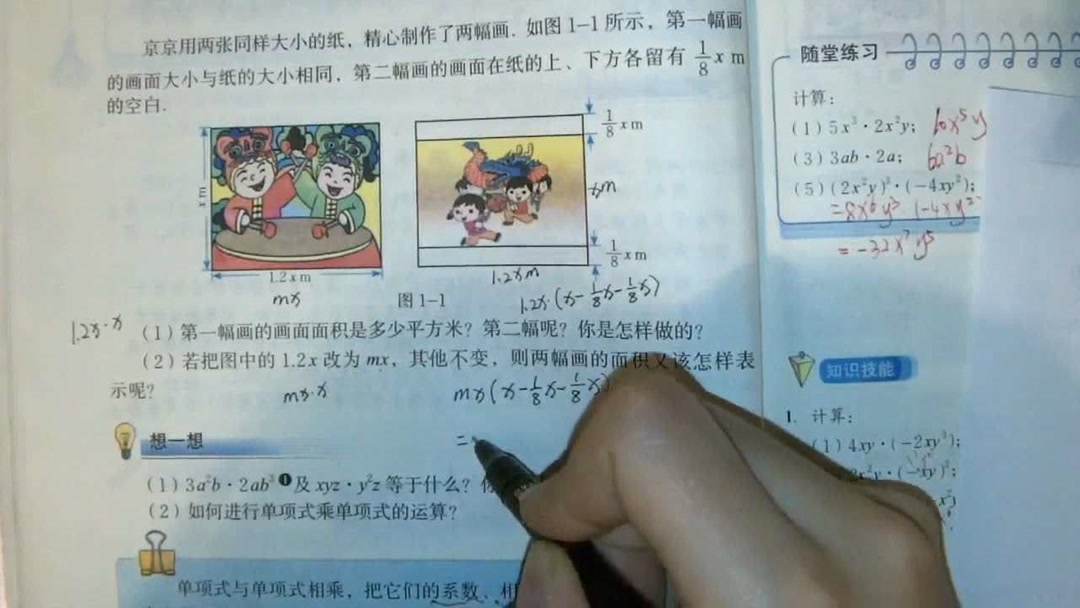 京京用两张同样大小的纸，精心制作了两幅画．如图 1-1 所示，第一幅画
的画面大小与纸的大小相同，第二幅画的画面在纸的上、下方各留有 1/8 x m
的空白．
1/8 x m
x m
xm
1/8 x m
1.2 x m
1.2xm
mx
图 1-1
1.2x·(x-1/8x-1/8x)
1.2x·x
（1）第一幅画的画面面积是多少平方米？第二幅呢？你是怎样做的？
（2）若把图中的 1.2x 改为 mx，其他不变，则两幅画的面积又该怎样表
示呢？
mx·x
mx(x-1/8x-1/8x)
=
想一想
（1）3a²b · 2ab³ ❶及 xyz · y²z 等于什么？
（2）如何进行单项式乘单项式的运算？
单项式与单项式相乘，把它们的系数、相
随堂练习
计算：
（1）5x³ · 2x²y； 10x⁵y
（3）3ab · 2a； 6a²b
（5）(2x²y)³ · (-4xy²)；
=8x⁶y³ (-4xy²
=-32x⁷y⁵
知识技能
1. 计算：
（1）4xy · (-2xy³)；